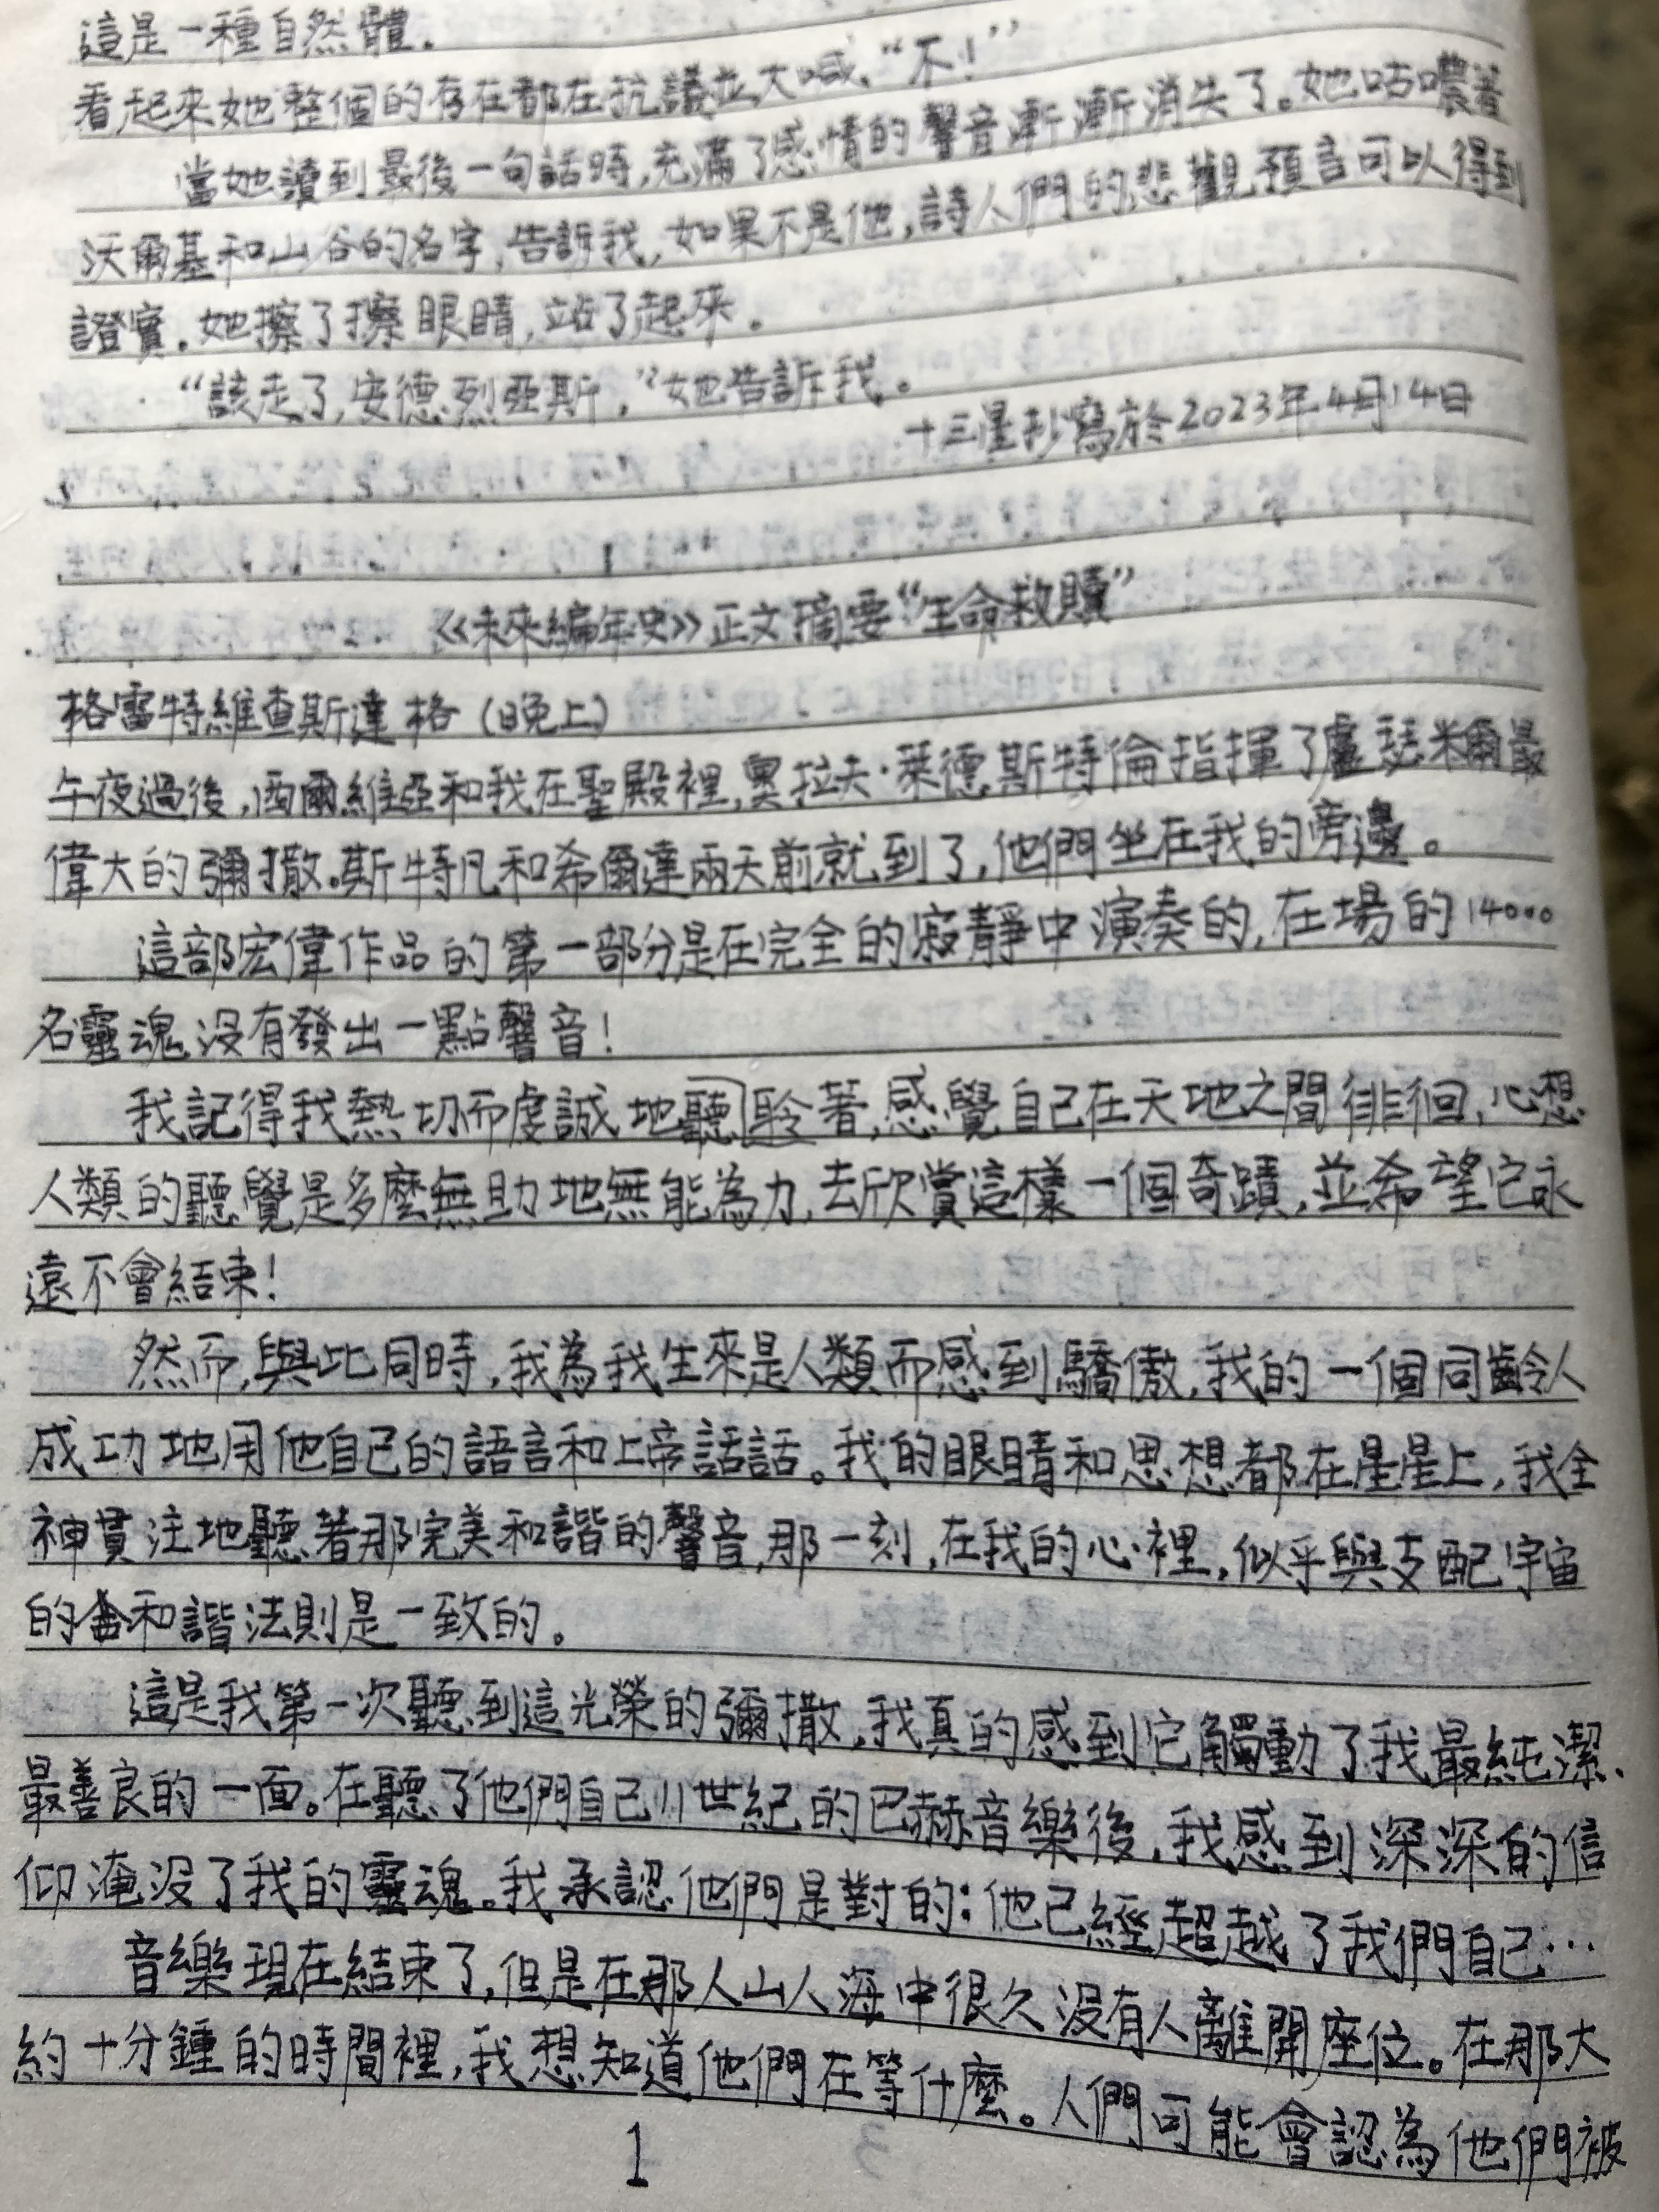 這是一種自然體.
看起來她整個的存在都在抗議並大喊、“不!”
當她讀到最後一句話時,充滿了感情的聲音漸漸消失了。她咕噥著
沃爾基和山谷的名字,告訴我,如果不是他,詩人們的悲觀預言可以得到
證實.她擦了擦眼睛,站了起來.
“該走了,安德烈亞斯,”她告訴我。
十三星抄寫於2023年4月14日
《未來編年史》正文摘要“生命救贖”
格雷特維查斯達格(晚上)
午夜過後,西爾維亞和我在聖殿裡,奧拉夫·萊德斯特倫指揮了盧瑟米爾最
偉大的彌撒.斯特凡和希爾達兩天前就到了,他們坐在我的旁邊。
這部宏偉作品的第一部分是在完全的寂靜中演奏的,在場的14000
名靈魂沒有發出一點聲音!
我記得我熱切而虔誠地聽聆著,感覺自己在天地之間徘徊,心想
人類的聽覺是多麼無助地無能為力,去欣賞這樣一個奇蹟,並希望它永
遠不會結束!
然而,與此同時,我為我生來是人類而感到驕傲,我的一個同齡人
成功地用他自己的語言和上帝話話。我的眼睛和思想都在星星上,我全
神貫注地聽著那完美和諧的聲音,那一刻,在我的心裡,似乎與支配宇宙
的和諧法則是一致的。
這是我第一次聽到這光榮的彌撒,我真的感到它觸動了我最純潔、
最善良的一面。在聽了他們自己11世紀的巴赫音樂後,我感到深深的信
仰淹沒了我的靈魂。我承認他們是對的:他已經超越了我們自己…
音樂現在結束了,但是在那人山人海中很久沒有人離開座位。在那大
約十分鍾的時間裡,我想知道他們在等什麼。人們可能會認為他們被
1